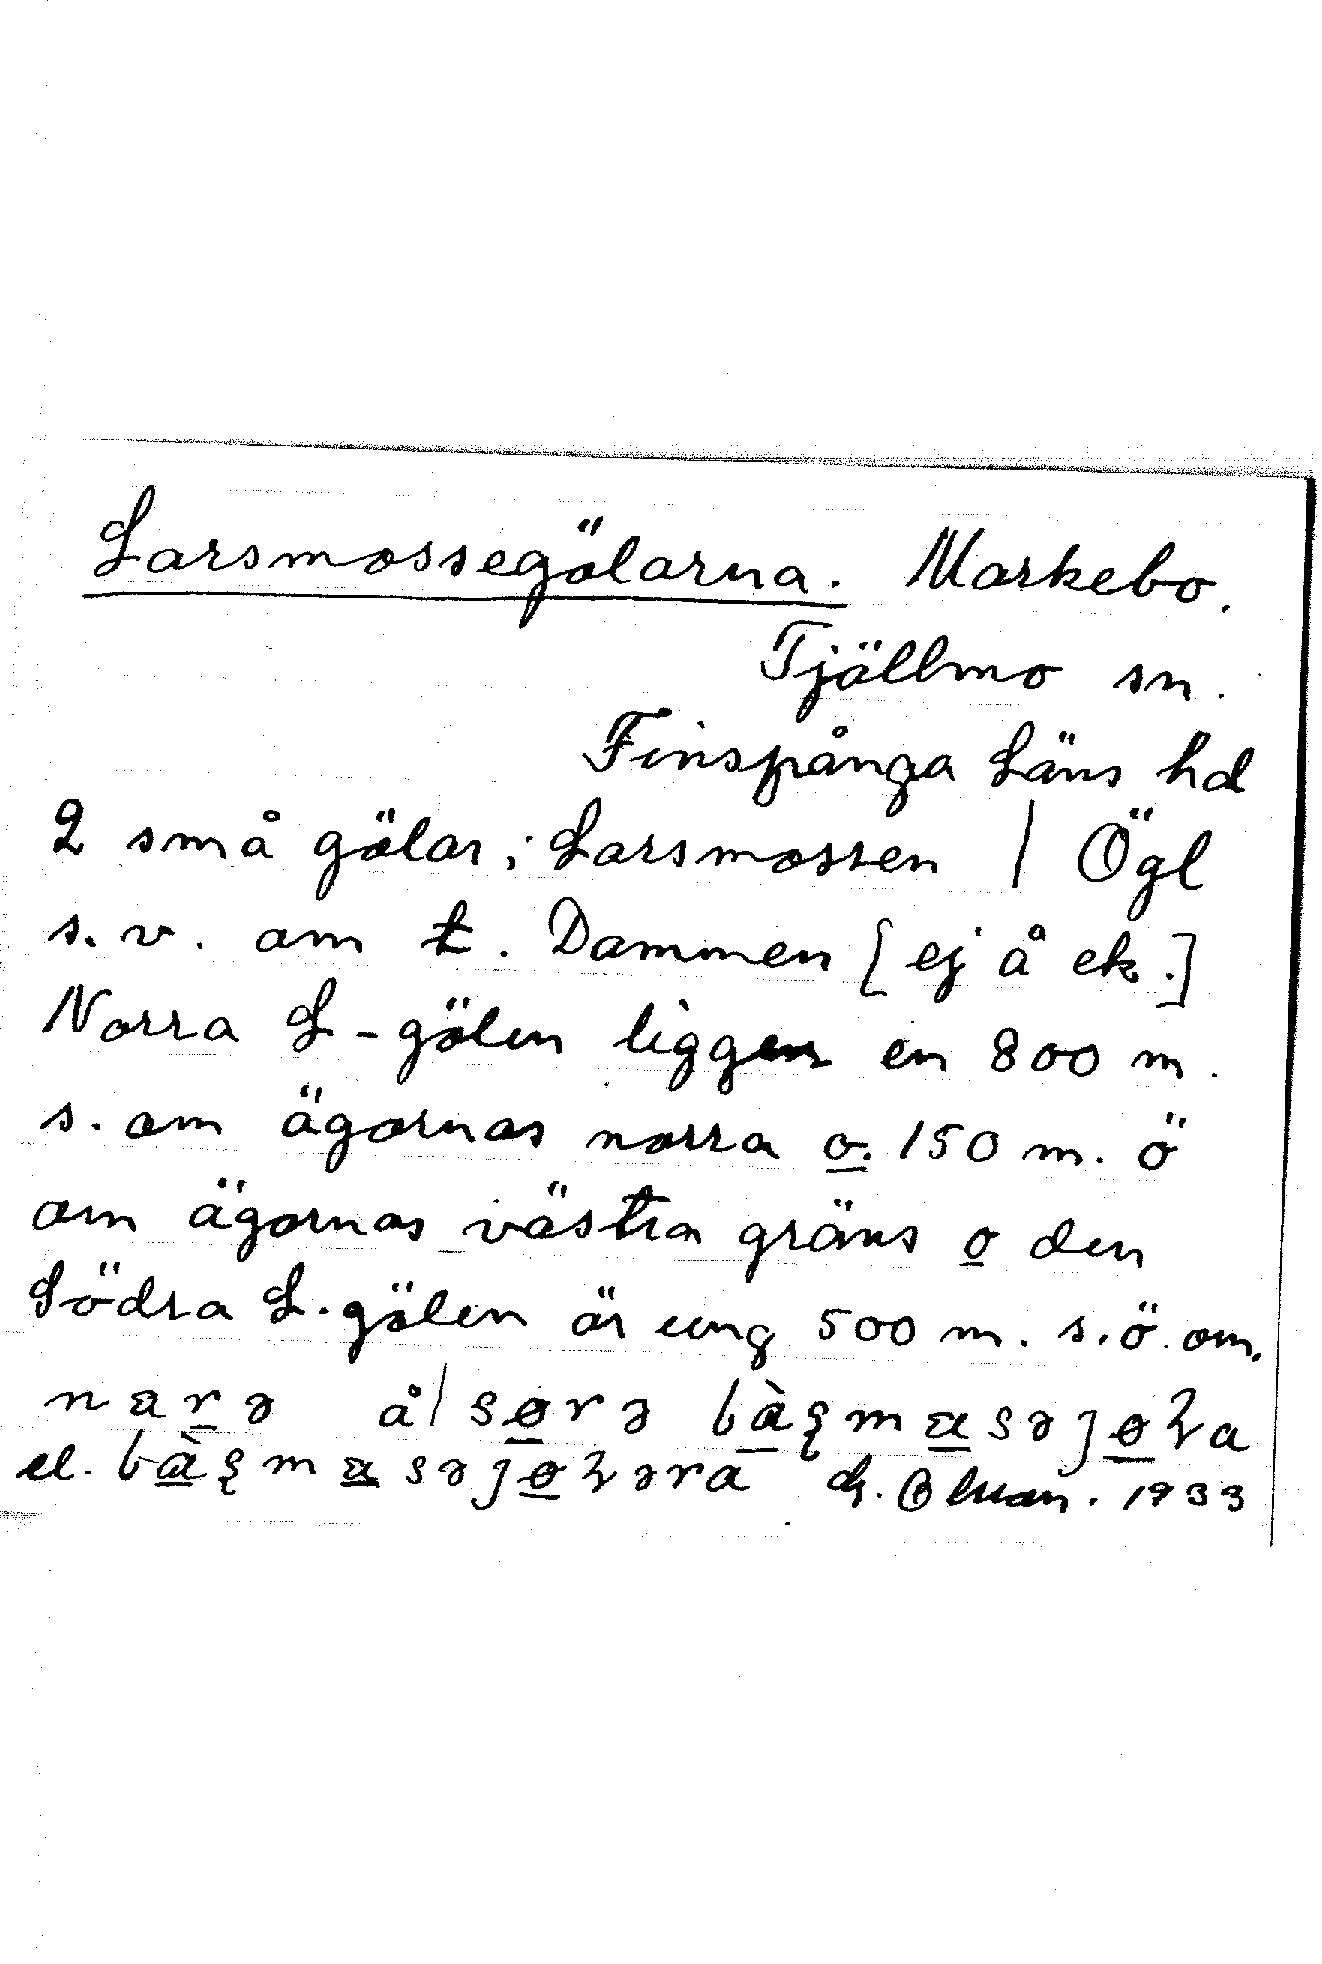 Larsmossegölarna. Markebo.
Tjällmo sn.
Finspånga Läns hd
2 små gölar i Larsmossen | Ögl
s.v. om t. Dammen [ej å ek.]
Norra L-gölen ligger en 800 m.
s. om ägornas norra o. 150 m. ö
om ägornas västra gräns o den
Södra L.gölen är ung 500 m. s.ö. om.
å|
el. 1933